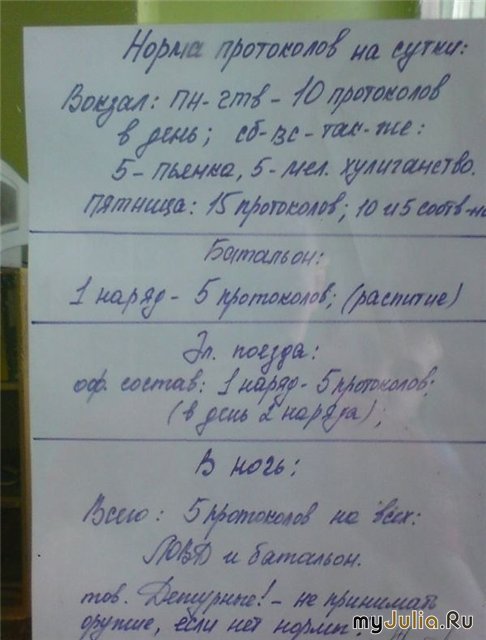 Норма протоколов на сутки:
Вокзал: пн-чтв - 10 протоколов
в день; сб-вс-так-же:
5- пьянка, 5-мел. хулиганство.
Пятница: 15 протоколов; 10 и 5 соотв-но
Батальон:
1 наряд - 5 протоколов; (распитие)
Эл. поезда:
оф. состав: 1 наряд - 5 протоколов;
(в день 2 наряда);
В ночь:
Всего: 5 протоколов на всех:
ЛОВД и батальон.
тов. Дежурные! - не принимать
оружие, если нет нормы!
myJulia.Ru